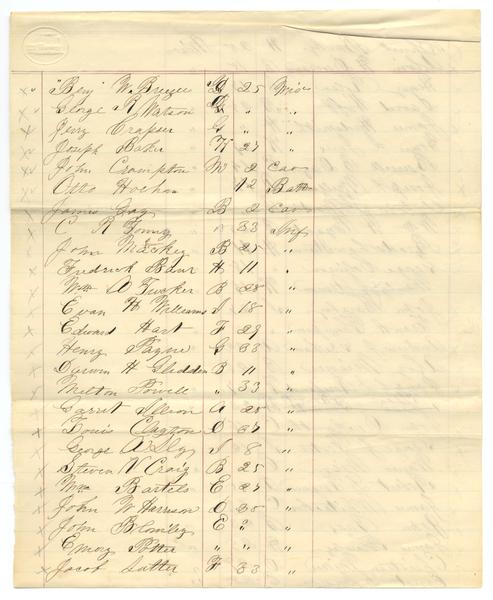 x v "Benj" W. Breese G 25 Wis
x v George R Watson G " "
x Jerry Trapser G " "
x v Joseph Baker K 27 "
x v John Crompton M 2 Cav
x Otto 12 Batt
x James Fay B 2 Cav
x C R " 33 Inf
x John Mackey B 25 "
x Fredrick Baur H 11 "
x Wm A Tucker B 28 "
x Evan H Williams I 18 "
x Edward Hart F 29 "
x Henry Payne G 33 "
x Darwin H Glidden B 11 "
x Milton Powell " 33 "
x Garret A 25 "
x Louis Clayton D 37 "
x George A Sly I 8 "
x Steven V Craig B 25 "
x Wm Bartels E 27 "
x John W Harrison D 30 "
x John Blomley E " "
x Emory Potter " " "
x Jacob Sutter F 33 "